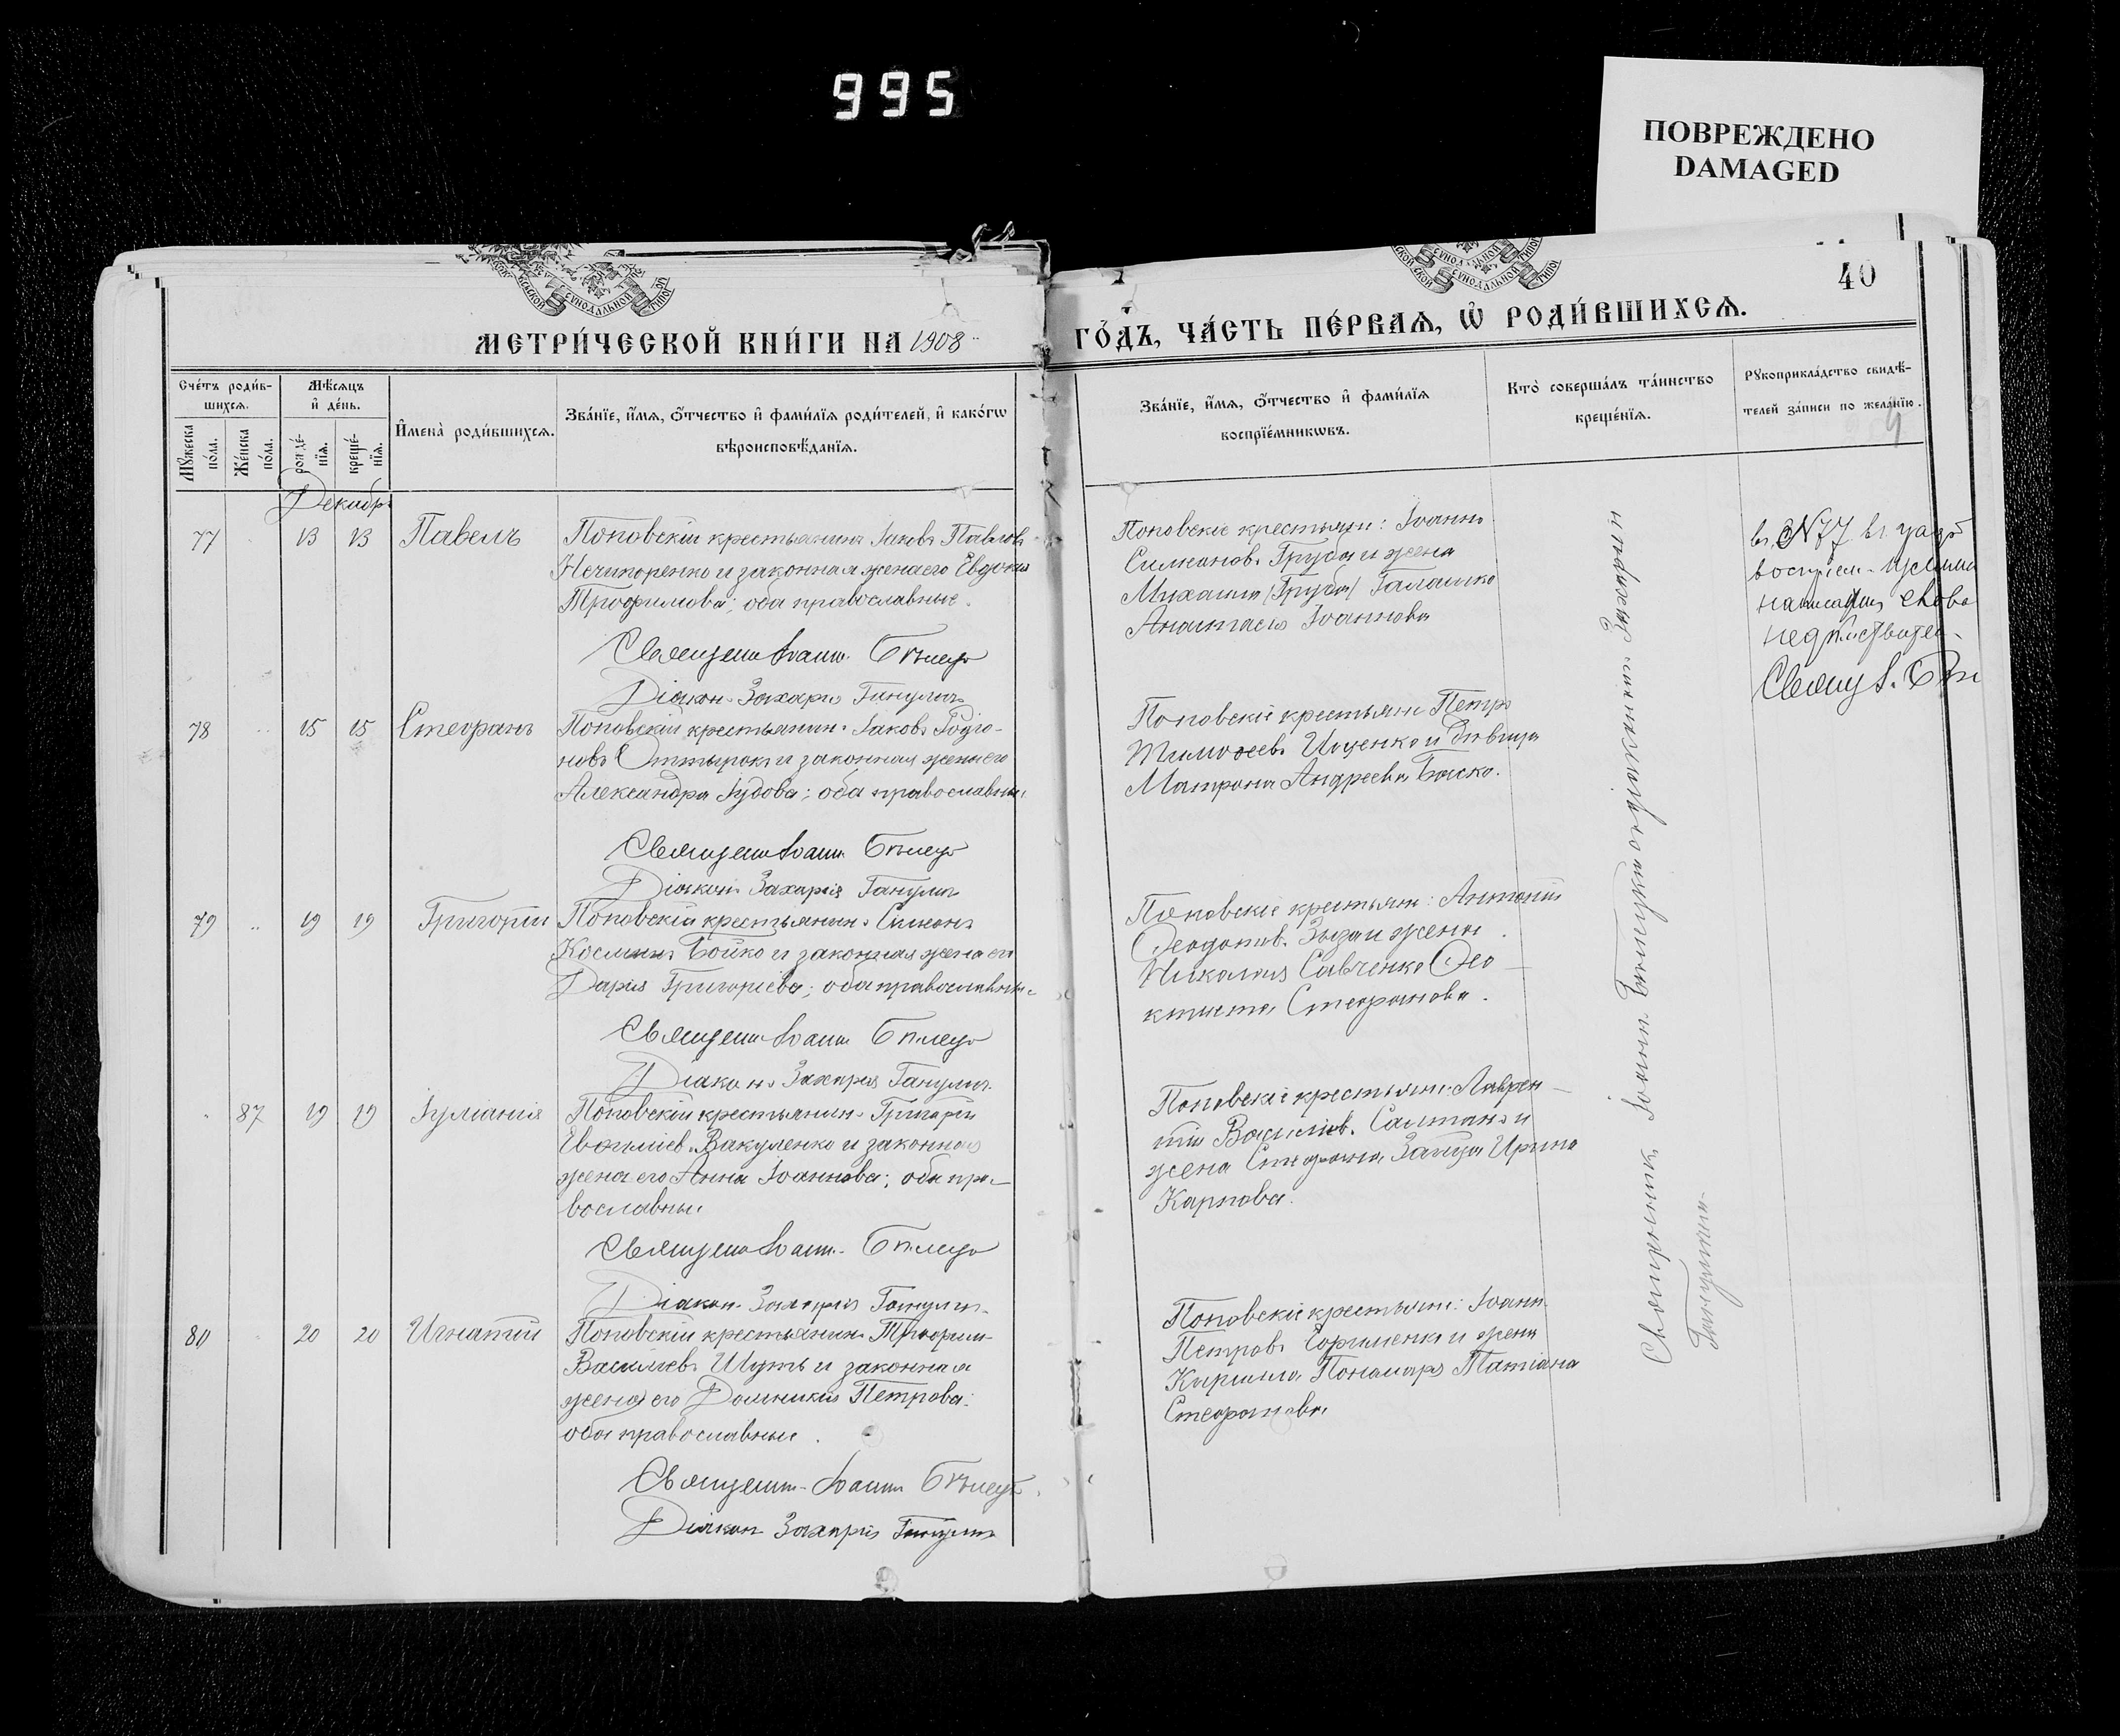 995
ПОВРЕЖДЕНО
DAMAGED
40
МЕТРИ́ЧЕСКОЙ КНИ́ГИ НА 1908
ГО́ДЪ, ЧА́СТЬ ПЕ́РВАѦ, Ѡ҆ РОДИ́ВШИХСѦ.
Сче́тъ роди́в-
шихсѧ.
Мꙋ́жеска по́ла.
Же́нска по́ла.
Мѣ́сѧцъ
и҆ де́нь.
рожде́-
нїѧ.
креще́-
нїѧ.
И҆мена̀ роди́вшихсѧ.
Зва́нїе, и҆́мѧ, ѻ҆́тчество и҆ фами́лїѧ роди́телей, и҆ како́гѡ
вѣроисповѣ́данїѧ.
Зва́нїе, и҆́мѧ, ѻ҆́тчество и҆ фами́лїѧ
воспрїе́мникѡвъ.
Кто̀ соверша́лъ та́инство
креще́нїѧ.
Рꙋкоприкла́дство свидѣ́-
телей за́писи по жела́нїю.
Декабрь
77 13 13 Павелъ
Поповскій крестьянинъ Іаковъ Павловъ
Нечипоренко и законная жена его Евдокія
Трофимова; оба православные.
Священ. Іоанн Бѣлецк
Діакон Захарія Ганулич
Поповскіе крестьяне: Іоаннъ
Симеонов. Груба и жена
Михаила (Груба) Галашко
Анастасія Іоаннова
въ №77 въ графѣ
написан слова
недѣйствител-
Священ. І. Бѣл
78 15 15 Стефанъ
Поповскій крестьянин Іаковъ Родіо-
новъ и законная жена его
Александра Іудова; оба православные
Священ Іоанн Бѣлецк
Діакон Захарія Ганулич
Поповскіе крестьяне Петръ
Тимоѳеевъ Иоценко и дѣвица
Матрона Андреева Бойко.
79 19 19 Григорій
Поповскій крестьянин Симеонъ
Космин Бойко и законная жена его
Дарія Григоріева; оба православные
Священ Іоанн Бѣлецк
Діакон Захарія Ганулич
Поповскіе крестьяне: Антоній
и жена
Николая Савченко Ѳео-
ктиста Стефанова.
87 19 19 Іуліанія
Поповскій крестьянин Григорій
Евѳиміев. Вакуленко и законная
жена его Анна Іоаннова; оба пра-
вославные
Священ Іоанн Бѣлецк
Діакон Захарія Ганулич
Поповскіе крестьяне: Лаврен-
тій Васильев. Салтанъ и
жена Стефана Заяца Ирина
Карпова.
80 20 20 Игнатій
Поповскій крестьянин Трофим
Васильевъ Шуть и законная
жена его Домникія Петрова;
оба православные.
Священ Іоанн Бѣлецк
Діакон Захарія Ганулич
Поповскіе крестьяне: Іоанн
Петровъ и жена
Кирилла Пономаря Татіана
Стефанова
Священник Іоанн Бѣлецкій с діаконом Захаріей
Гануличем